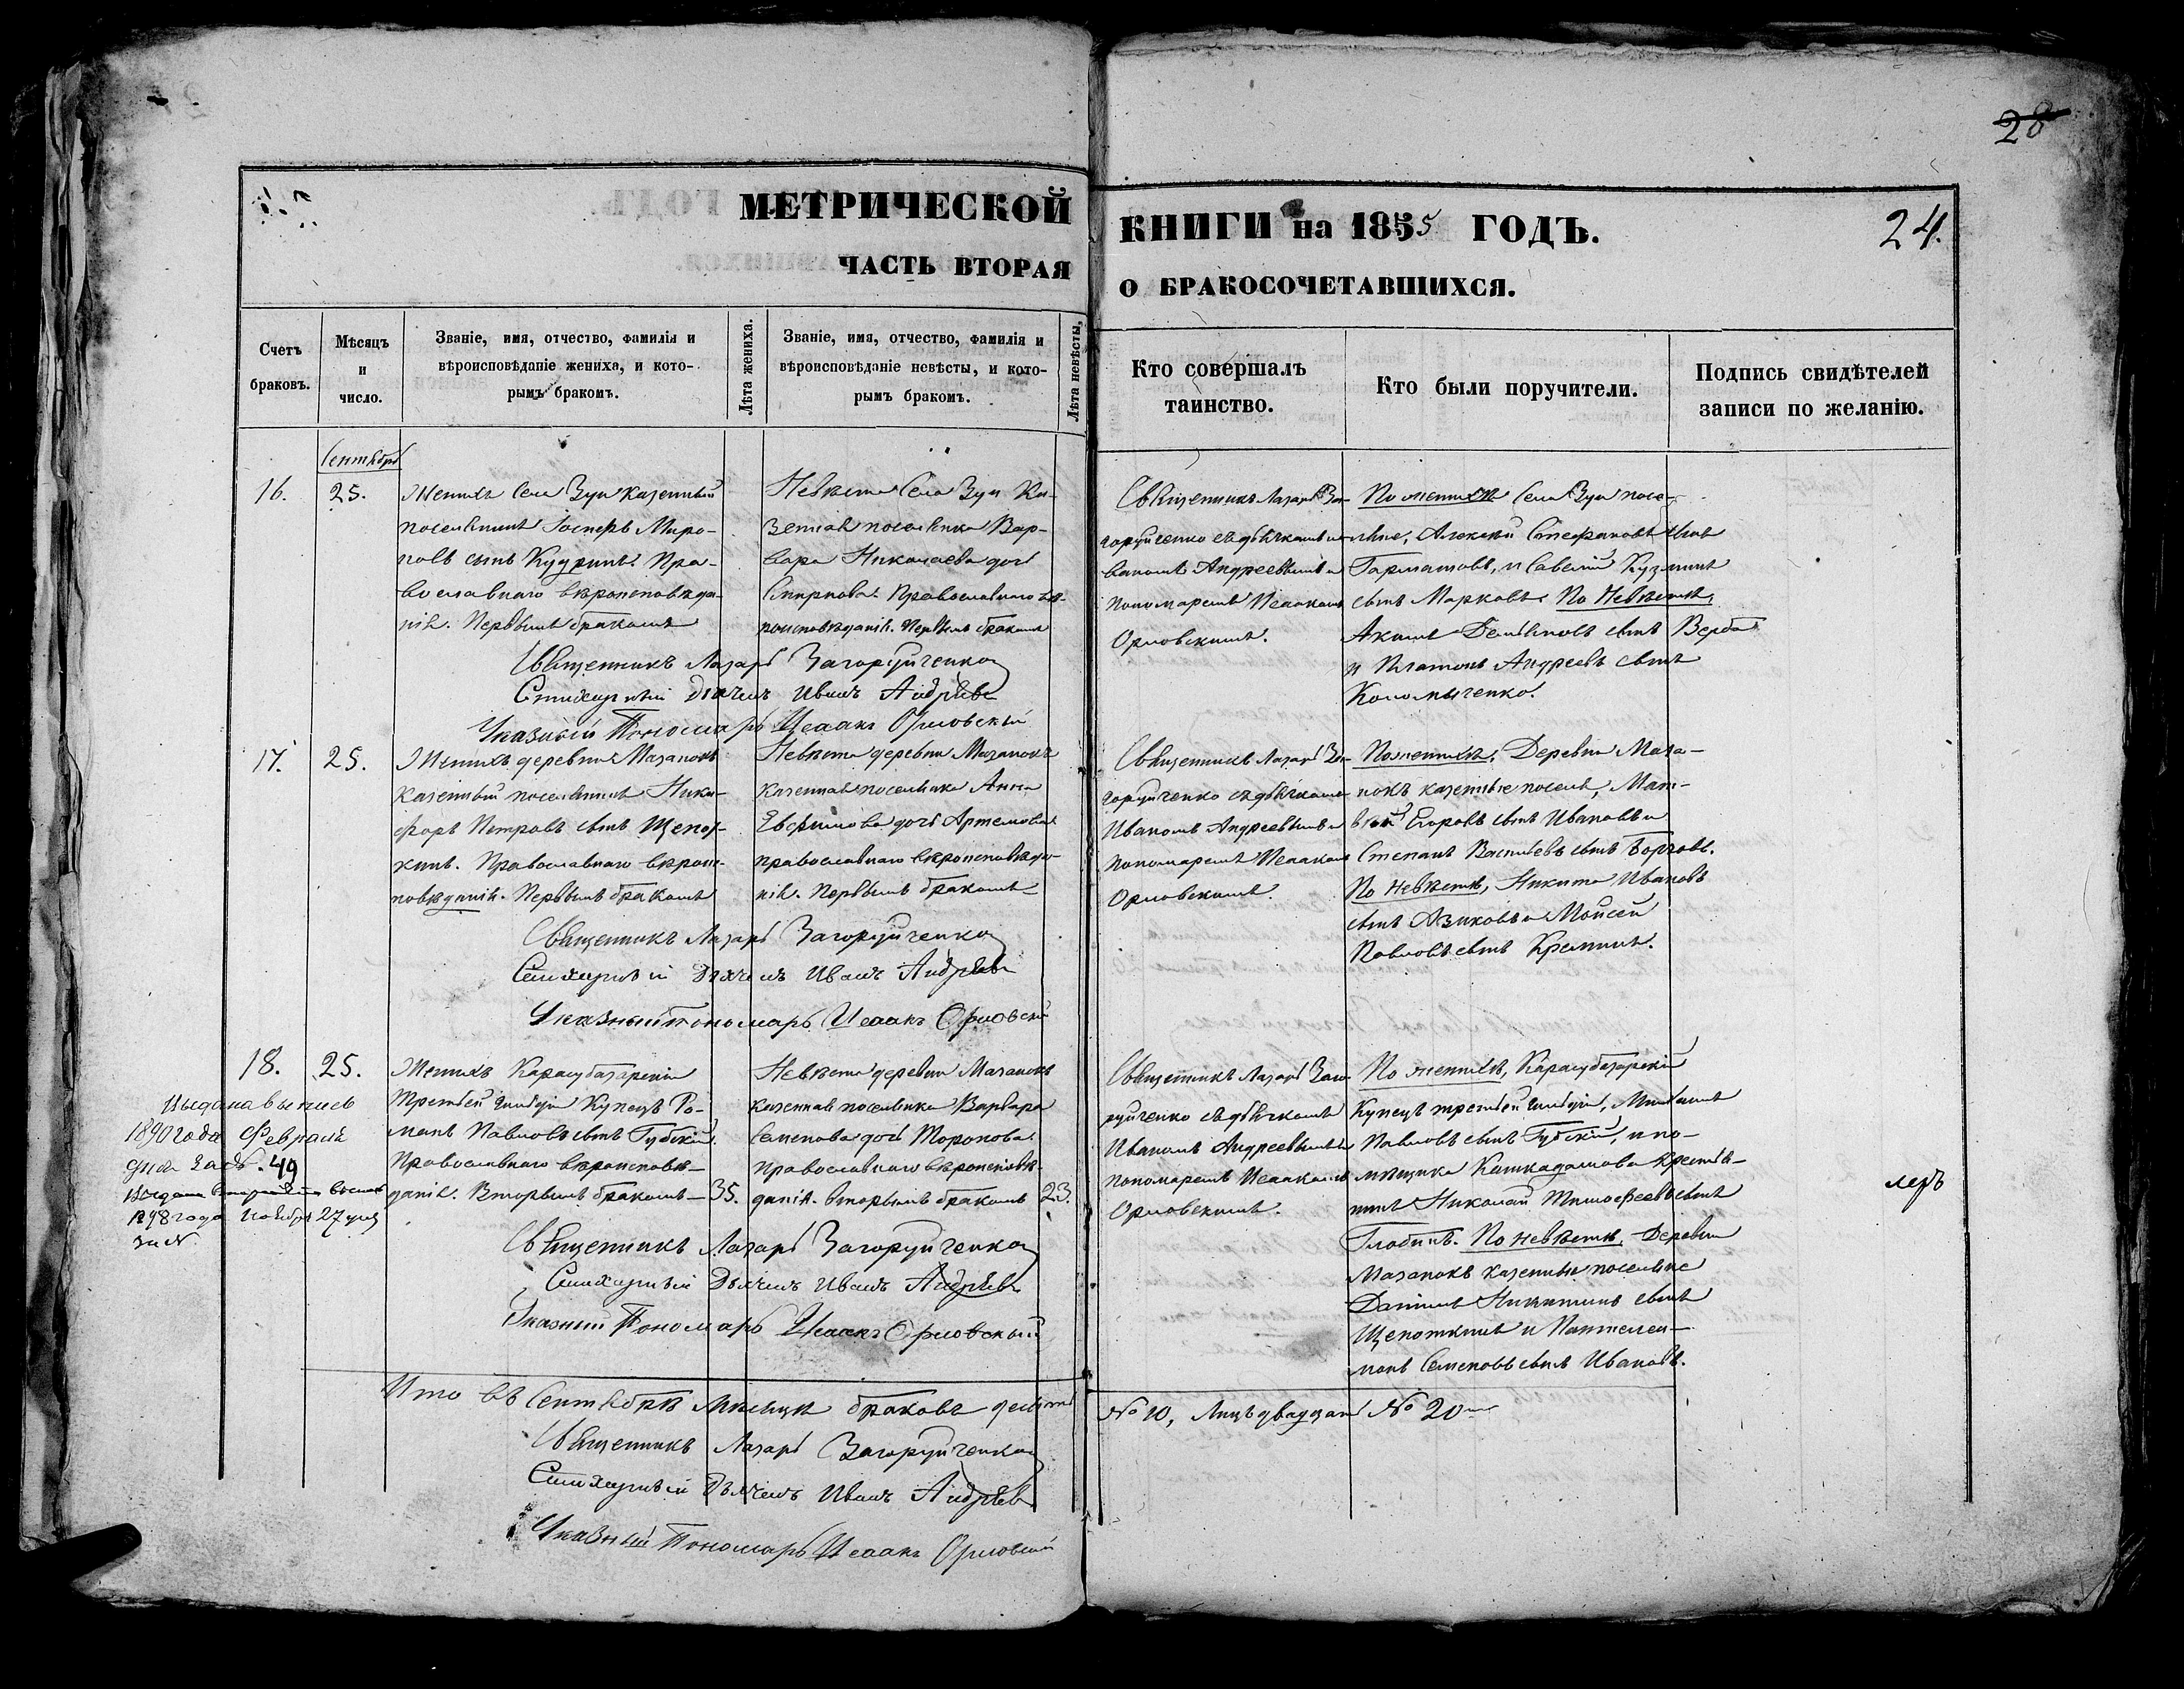 28
МЕТРИЧЕСКОЙ
КНИГИ на 1855 ГОДЪ.
24.
ЧАСТЬ ВТОРАЯ
О БРАКОСОЧЕТАВШИХСЯ.
Счетъ
браковъ.
Мѣсяцъ
и
число.
Званіе, имя, отчество, фамилія и
вѣроисповѣданіе жениха, и кото-
рымъ бракомъ.
Лѣта жениха.
Званіе, имя, отчество, фамилія и
вѣроисповѣданіе невѣсты, и кото-
рымъ бракомъ.
Лѣта невѣсты,
Кто совершалъ
таинство.
Кто были поручители.
Подпись свидѣтелей
записи по желанію.
Сентябрь
16.
25.
Женихъ Села Зуи казенный
поселянинъ Миро-
новъ сынъ Кудринъ. Пра-
вославнаго вѣроисповѣда-
нія. Первымъ бракомъ
Невѣста Села Зуи Ка-
зенная поселянка Вар-
вара Николаева дочь
Смирнова. Православнаго вѣ-
роисповѣданія. Первымъ бракомъ
Священникъ Лазарь За-
горуйченко съ дьячкомъ И-
ваномъ Андреевымъ и
пономаремъ Исаакомъ
Орловскимъ.
По женихѣ Села Зуи посе-
ляне, Алексѣй Стефановъ сынъ
Гарматовъ, и Савелій Кузминъ
сынъ Марковъ. По Невѣстѣ,
Акимъ Демьяновъ сынъ Верба
и Платонъ Андреевъ сынъ
Коломыченко.
Священникъ Лазарь Загоруйченко
Стихарный Дьячекъ Иванъ Андреевъ
Указный Пономарь Исаакъ Орловскій
17.
25.
Женихъ деревни Мазанокъ
казенный поселянинъ Ники-
форъ Петровъ сынъ Щепот-
кинъ. Православнаго вѣроис-
повѣданія. Первымъ бракомъ
Невѣста деревни Мазанокъ
казенная поселянка Анна
Евфимова дочь Артемова
православнаго вѣроисповѣда-
нія. Первымъ бракомъ
Священникъ Лазарь За-
горуйченко съ дьячкомъ
Иваномъ Андреевымъ и
пономаремъ Исаакомъ
Орловскимъ.
По женихѣ, Деревни Маза-
нокъ казенные поселяне, Мат-
вѣй Егоровъ сынъ Ивановъ и
Степанъ Васильевъ сынъ
По невѣстѣ, Никита Ивановъ
сынъ Азиковъ и Мойсей
Павловъ сынъ
Священникъ Лазарь Загоруйченко
Стихарный Дьячекъ Иванъ Андреевъ
Указный Пономарь Исаакъ Орловскій
18.
25.
Выдана выпись
1890 года Февраля
дня за №. 49
Выдана вторая выпись
1898 года Ноября 27 дня
за №
Женихъ Карасубазарскій
Третьей гильдіи Купецъ Ро-
манъ Павловъ сынъ Губскій.
Православнаго вѣроисповѣ-
данія. Вторымъ бракомъ
35.
Невѣста деревни Мазанокъ
казенная поселянка Варвара
Семенова дочь Торопова
православнаго вѣроисповѣ-
данія. вторымъ бракомъ
23.
Священникъ Лазарь Заго-
руйченко съ дьячкомъ
Иваномъ Андреевымъ и
пономаремъ Исаакомъ
Орловскимъ.
По женихѣ, Карасубазарскій
Купецъ третьей гильдіи,
Павловъ сынъ Губскій, и по-
мѣщика Кашкадамова крестья-
нинъ Николай Тимофеевъ сынъ
Глобинъ. По невѣстѣ, Деревни
Мазанокъ казенные поселяне
Даніилъ Никитинъ сынъ
Щепоткинъ и Пантелеи-
монъ Семеновъ сынъ Ивановъ.
леръ
Священникъ Лазарь Загоруйченко
Стихарный Дьячекъ Иванъ Андреевъ
Указный Пономарь Исаакъ Орловскій
Итого въ Сентябрѣ мѣсяцѣ браковъ десять
№ 10, Лицъ двадцать № 20
Священникъ Лазарь Загоруйченко
Стихарный Дьячекъ Иванъ Андреевъ
Указный Пономарь Исаакъ Орловскій